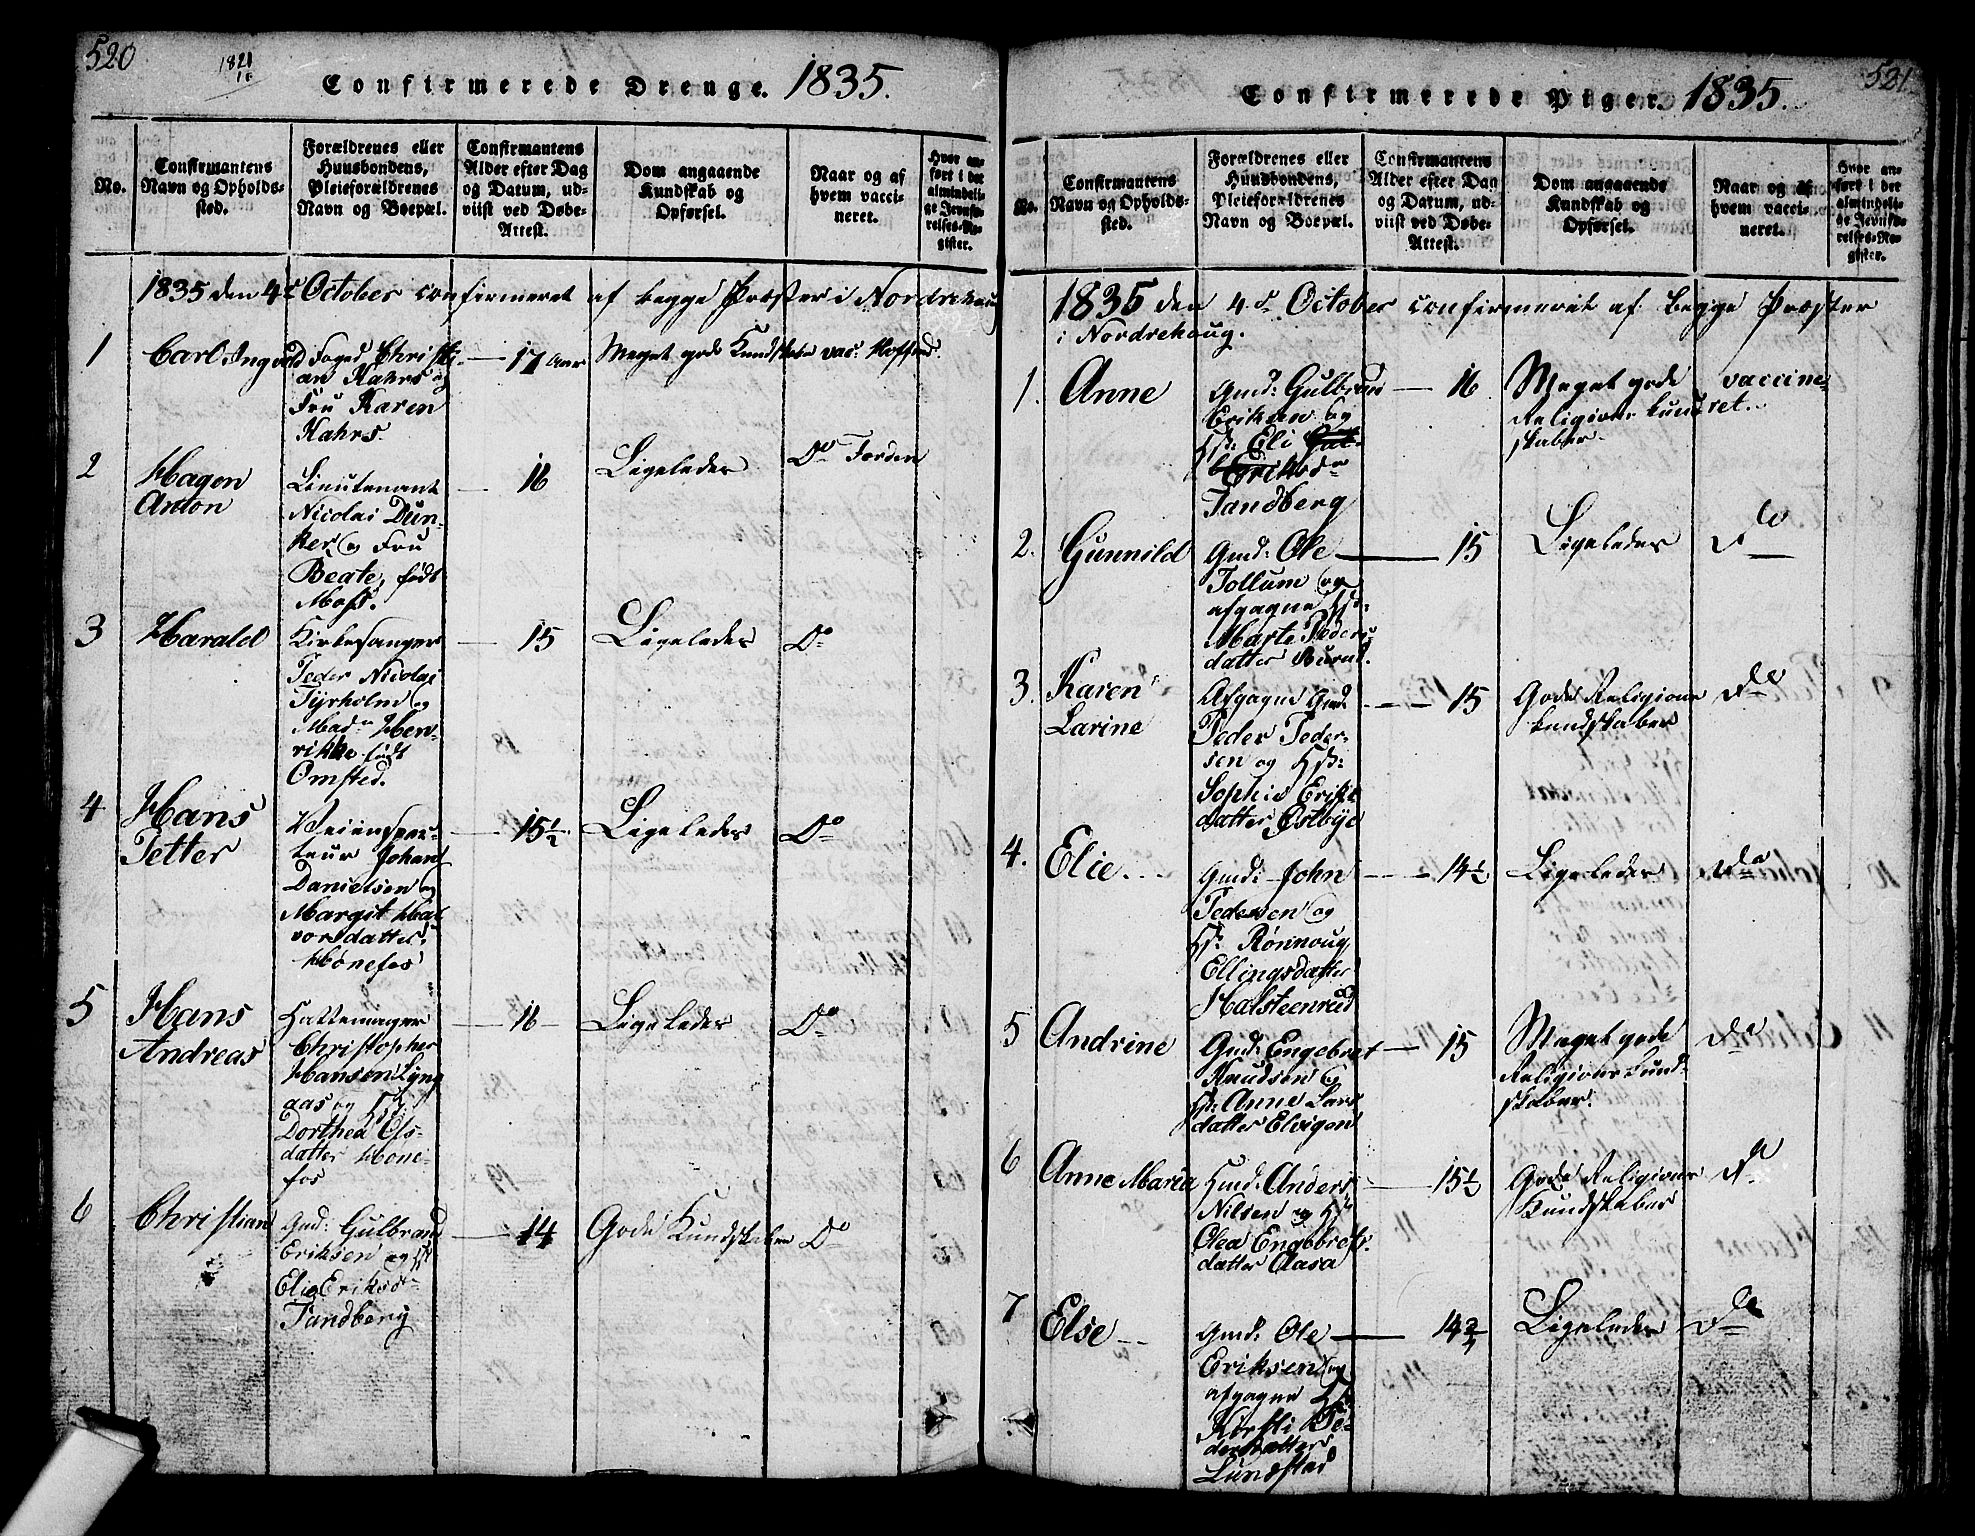 520
1821
16
Confirmerede Drenge. 1835.
No.
Confirmantens
Navn og Opholds-
sted.
Forældrenes eller
Huusbondens,
Pleieforældrenes
Navn og Boepæl.
Confirmantens
Alder efter Dag
og Datum, ud-
viist ved Døbe-
Attest.
Dom angaaende
Kundskab og
Opførsel.
Naar og af
hvem vacci-
neret.
Hvor an-
ført i det
almindeli-
ge Jevnfø-
relses-Re-
gister.
1835 den 4de October confirmeret af begge Præster i Nordrehoug
1 Carl Ingvald
Foged Christi-
an Kahrs og
Fru Karen
Kahrs.
17 Aar
Meget gode Kundskaber
vac:
2 Hagen
Anton
Lieutenant
Nicolai Dun-
ker og Fru
Beate, født
Moss.
16
Ligeledes
Do
3 Harald
Kirkesanger
Peder Nicolai
Tyrholm og
Madn Hen-
rikke født
Omsted.
15
Ligeledes
Do
4 Hans
Petter
Veiinspec-
teur Johan
Danielsen og
Margit Hal
vorsdatter,
Hønefos
15½
Ligeledes
Do
5 Hans
Andreas
Hattemager
Christopher
Hansen Lyng
aas og Hst
Dorthea Ols-
datter Høne-
fos
16
Ligeledes
Do
6 Christian
Gmd: Gulbrand
Eriksen og Hst
Elie Eriksdr
Tandberg
14
Gode Kundskaber
Do
521
Confirmerede Piger. 1835.
No.
Confirmantens
Navn og Opholds-
sted.
Forældrenes eller
Huusbondens,
Pleieforældrenes
Navn og Boepæl.
Confirmantens
Alder efter Dag
og Datum, ud-
viist ved Døbe-
Attest.
Dom angaaende
Kundskab og
Opførsel.
Naar og af
hvem vacci-
neret.
Hvor an-
ført i det
almindeli-
ge Jevnfø-
relses-Re-
gister.
1835 den 4de October confirmeret af begge Præster
i Nordrehoug.
1. Anne
Gmd: Gulbran
Eriksen og
Hst: Eli
Eriksdr
Tandberg
16
Meget gode
Religions kund
skaber.
vaccine-
ret.
2. Gunnild
Gmd: Ole
Tollum og
afgagne Hst:
Marte Peders
datter Burud.
15
Ligeledes
Do
3. Karen
Larine
Afgagne Gmd
Peder Peder-
sen og Hst:
Sophie Eriks
datter Østbye
15
Gode Religions
kundskaber
Do
4. Elie
Gmd: John
Pedersen og
Hst: Rønnoug
Ellingsdatter
Halsteenrud
14½
Ligeledes
Do
5 Andrine
Gmd: Engebret
Knudsen og
Hst: Anne Lars
datter Elvigen
15
Meget gode
Religions Kund-
skaber.
Do
6 Anne Maria
Hmd: Anders
Nilsen og Hst
Olea Engebrets-
datter Aasa
15½
Gode Religions
Kundskaber
Do
7 Else
Gmd: Ole
Eriksen og
afgagne Hst
Kersti Pe-
dersdatter
Lundstad
14¾
Ligeledes
Do